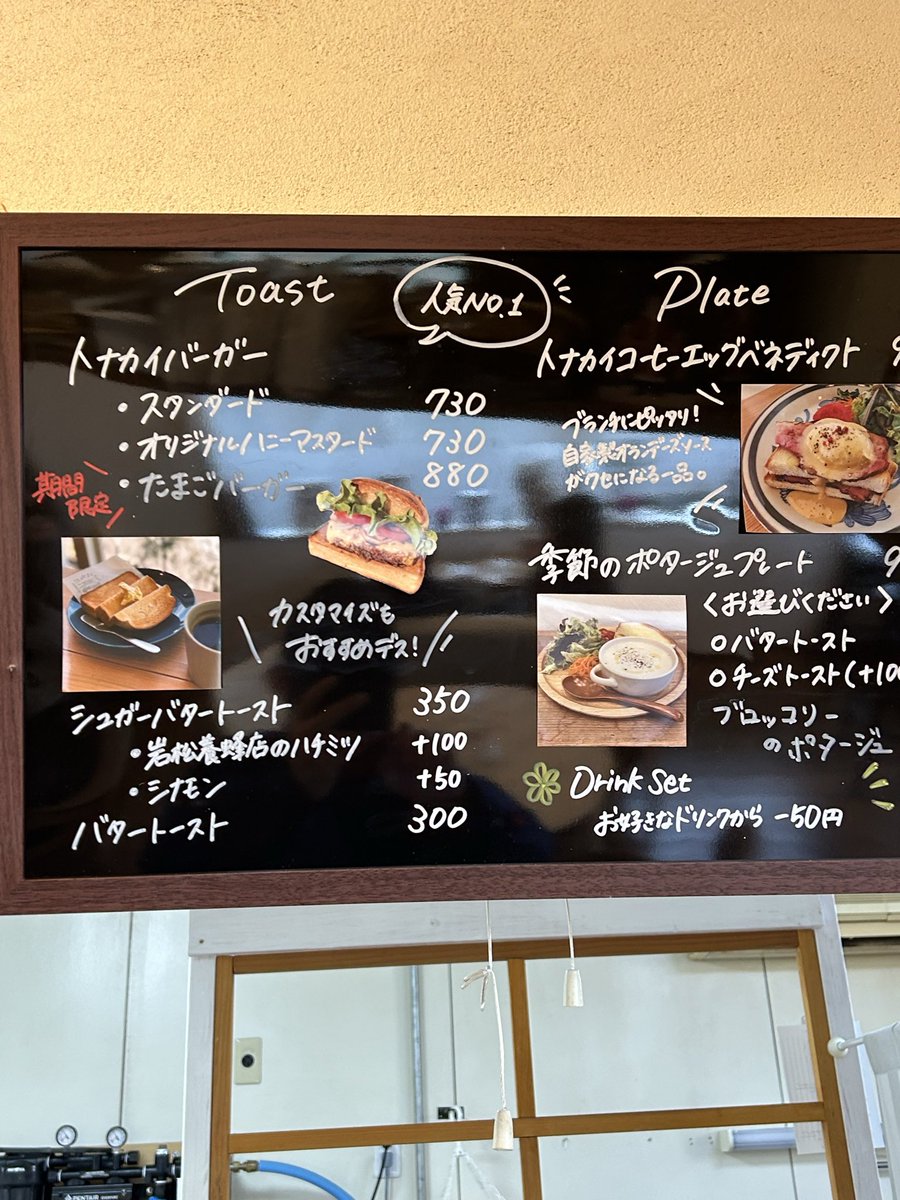 Toast
人気NO.1
トナカイバーガー
・スタンダード 730
・オリジナルハニーマスタード 730
期間限定
・たまごバーガー 880
カスタマイズも
おすすめデス!
シュガーバタートースト 350
・岩松養蜂店のハチミツ +100
・シナモン +50
バタートースト 300
Plate
トナカイコーヒーエッグベネディクト 9
ブランチにピッタリ!
自家製オランデーズソース
がクセになる一品。
季節のポタージュプレート 9
<お選びください>
○バタートースト
○チーズトースト(+100
ブロッコリー
のポタージュ
Drink Set
お好きなドリンクから -50円
PENTAIR